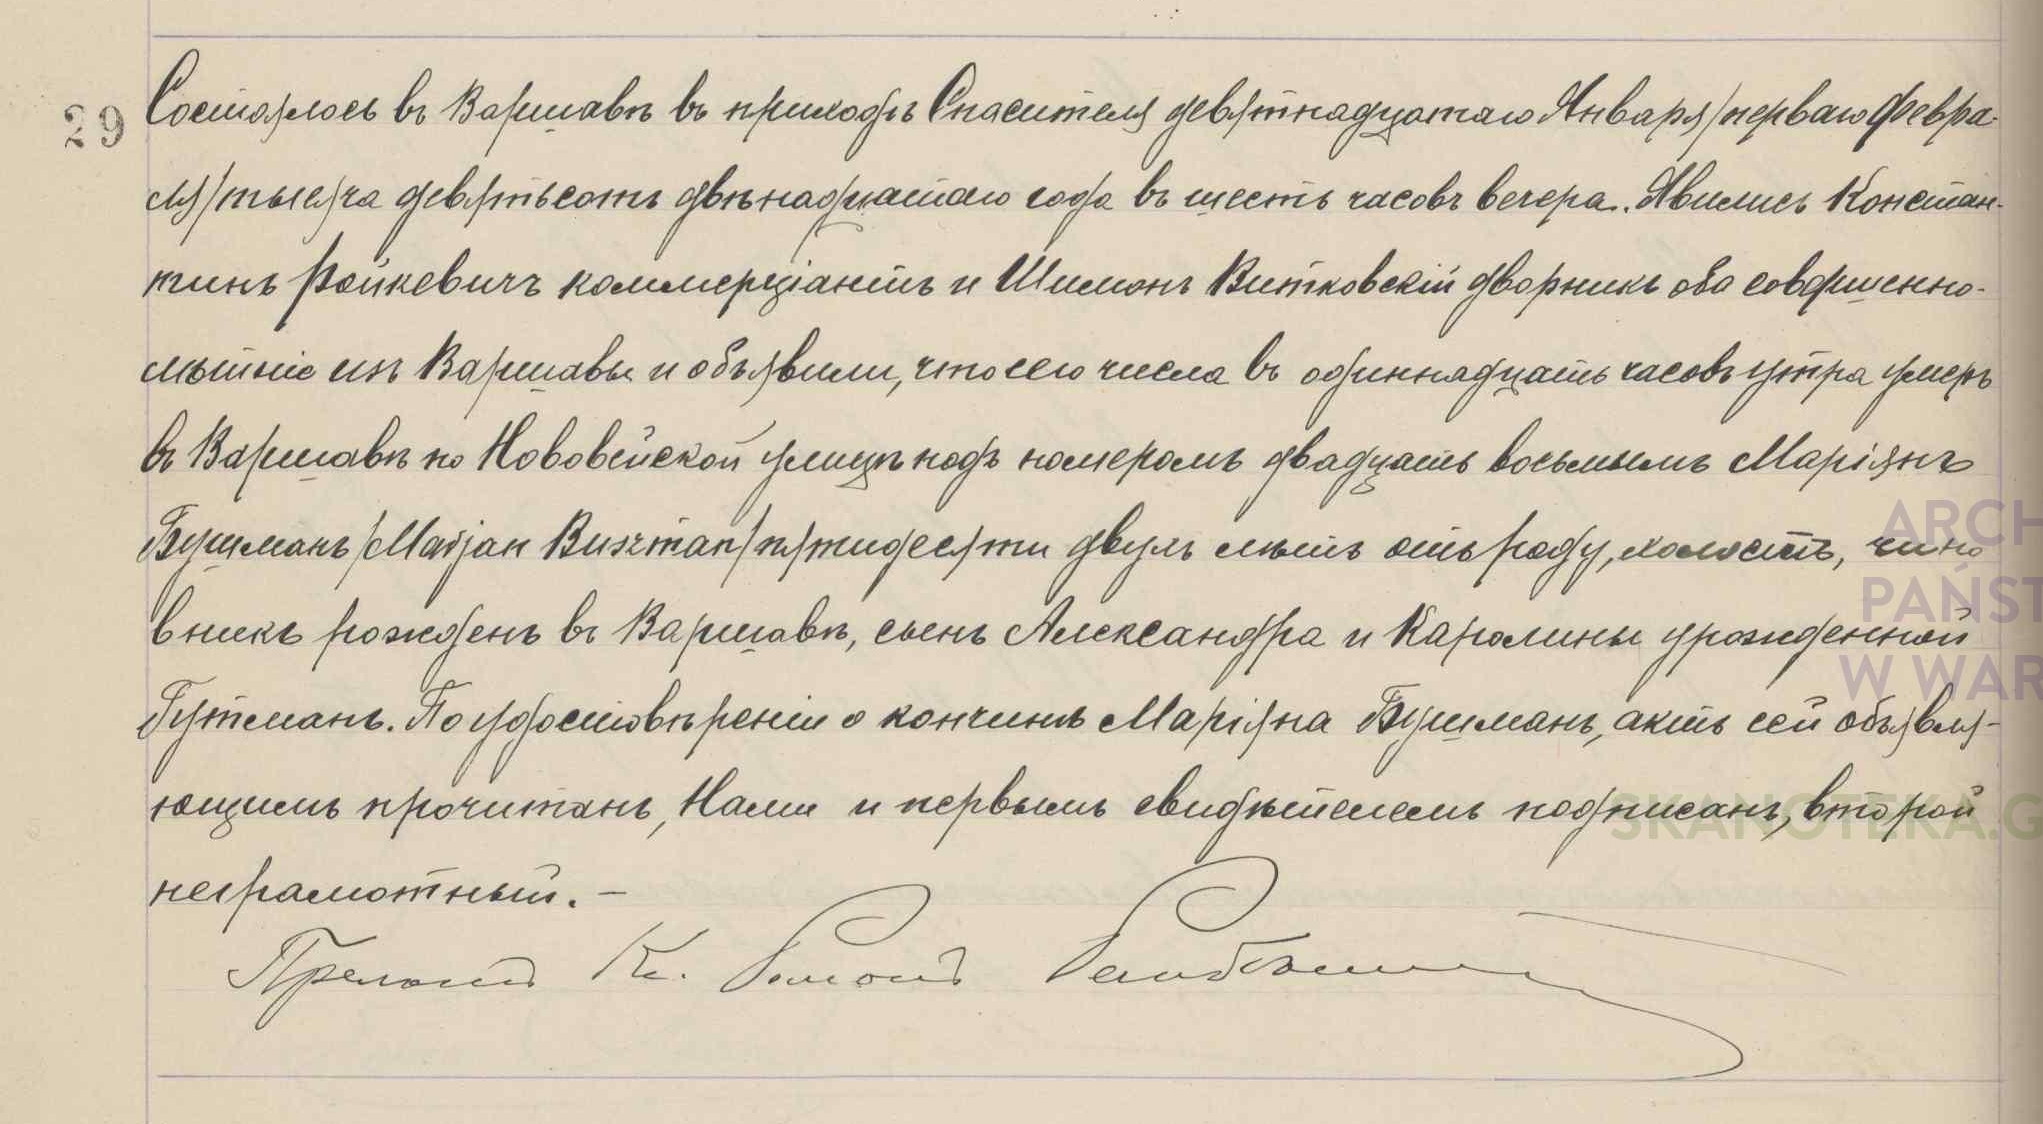 29
Состоялось въ Варшавѣ въ приходѣ Спасителя девятнадцатаго Января/перваго Февра-
ля/тысяча девятьсотъ двѣнадцатаго года въ шесть часовъ вечера. Явились Констан-
тинъ Ройкевичъ коммерціантъ и Шимонъ Витковскій дворникъ оба совершенно-
лѣтніе изъ Варшавы и объявили, что сего числа въ одиннадцать часовъ утра умеръ
въ Варшавѣ по Нововейской улицѣ подъ номеромъ двадцать восьмымъ Маріянъ
Бушманъ/Marjan Buszman/пятидесяти двухъ лѣтъ отъ роду, холостъ, чино
вникъ рожденъ въ Варшавѣ, сынъ Александра и Каролины урожденной
Гутманъ. По удостовѣреніи о кончинѣ Маріяна Бушманъ, актъ сей объявля-
ющимъ прочитанъ, Нами и первымъ свидѣтелемъ подписанъ, второй
неграмотный. –
Прелатъ К.
ARCH
PAŃST
W WAR
SKANOTEKA.G